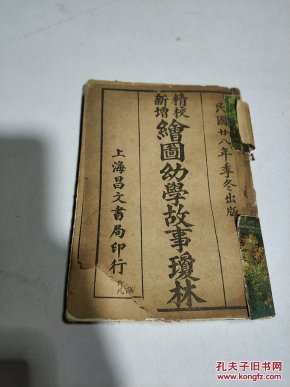 民國廿八年季冬出版
精校
新增
繪圖幼學故事瓊林
上海昌文書局印行
孔夫子旧书网
www.kongfz.com